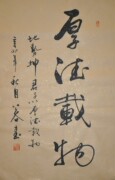 厚德載物
地势坤君子以厚德載物
年秋月